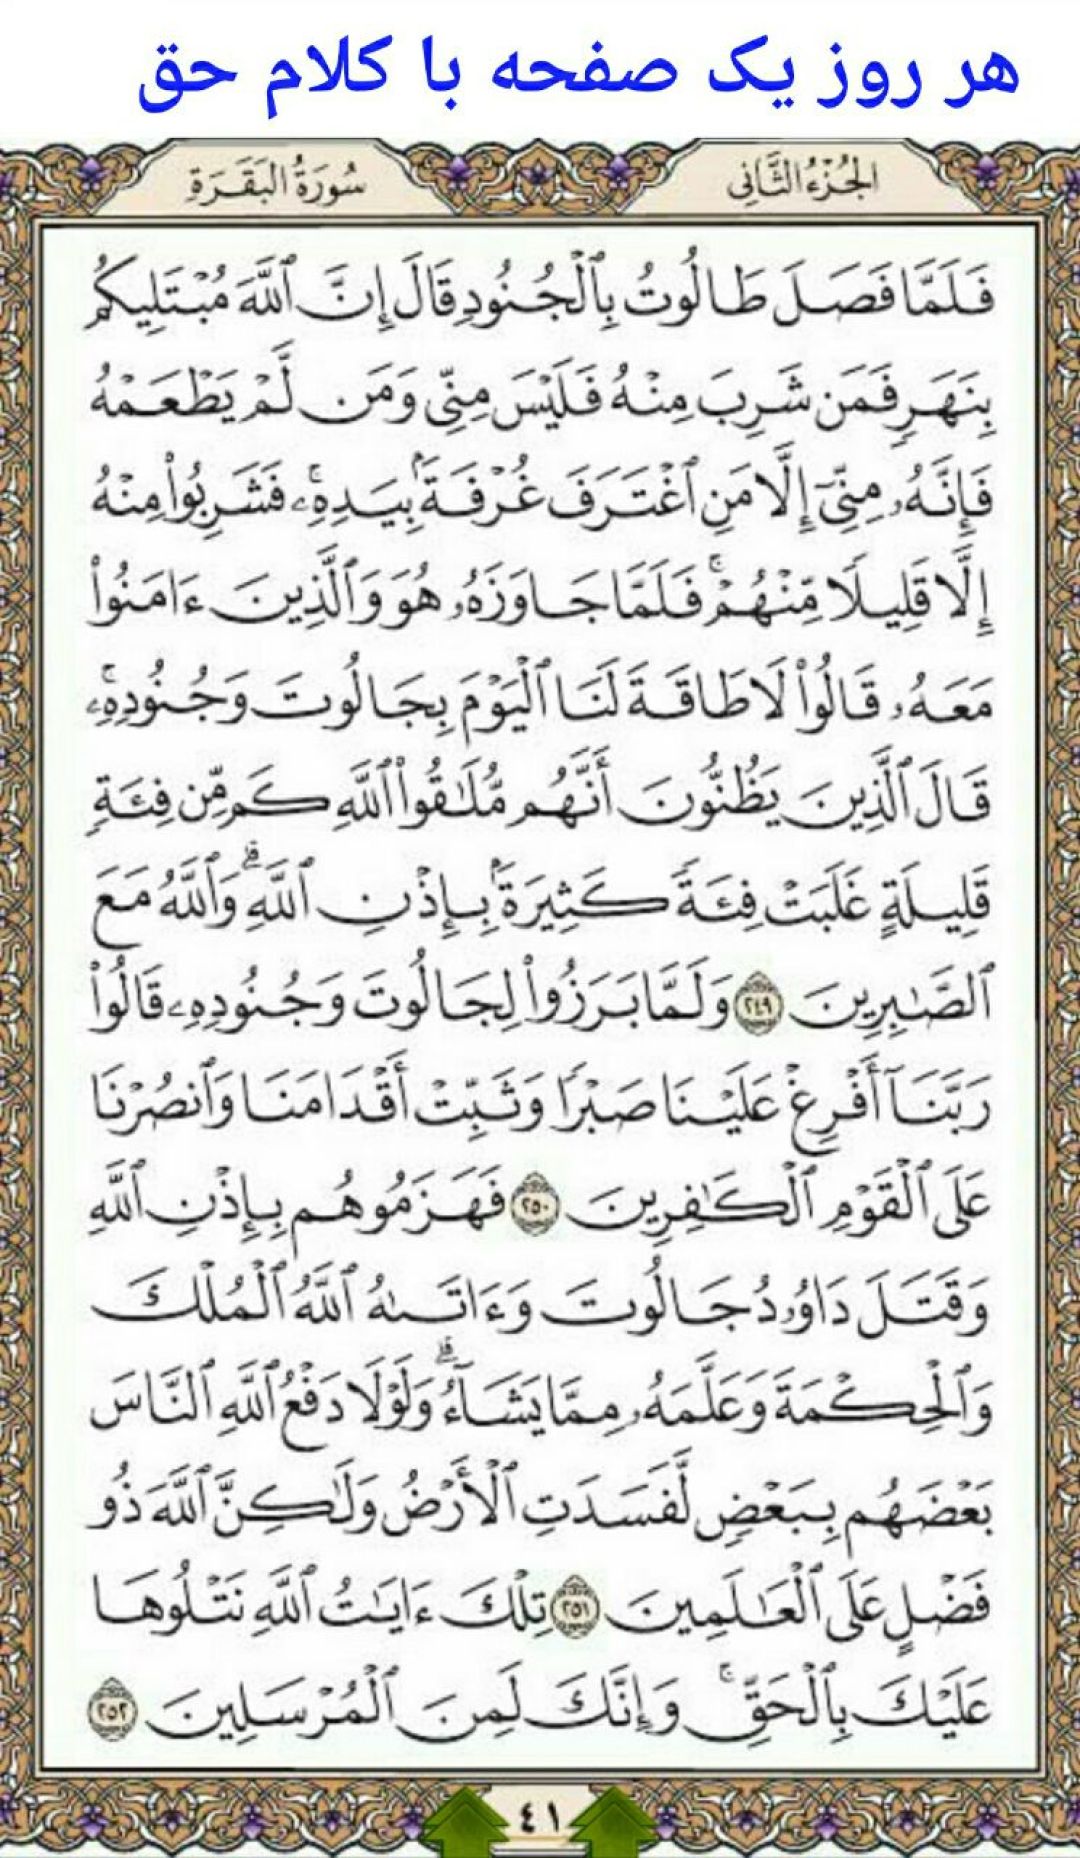 هر روز یک صفحه با کلام حق
الجُزْءُ الثَّانِى
سُورَةُ البَقَرَةِ
فَلَمَّا فَصَلَ طَالُوتُ بِٱلْجُنُودِ قَالَ إِنَّ ٱللَّهَ مُبْتَلِيكُم
بِنَهَرٍ فَمَن شَرِبَ مِنْهُ فَلَيْسَ مِنِّى وَمَن لَّمْ يَطْعَمْهُ
فَإِنَّهُۥ مِنِّىٓ إِلَّا مَنِ ٱغْتَرَفَ غُرْفَةًۢ بِيَدِهِۦۚ فَشَرِبُوا۟ مِنْهُ
إِلَّا قَلِيلًا مِّنْهُمْۚ فَلَمَّا جَاوَزَهُۥ هُوَ وَٱلَّذِينَ ءَامَنُوا۟
مَعَهُۥ قَالُوا۟ لَا طَاقَةَ لَنَا ٱلْيَوْمَ بِجَالُوتَ وَجُنُودِهِۦۚ
قَالَ ٱلَّذِينَ يَظُنُّونَ أَنَّهُم مُّلَٰقُوا۟ ٱللَّهِ كَم مِّن فِئَةٍ
قَلِيلَةٍ غَلَبَتْ فِئَةً كَثِيرَةًۢ بِإِذْنِ ٱللَّهِۗ وَٱللَّهُ مَعَ
ٱلصَّٰبِرِينَ ٢٤٩ وَلَمَّا بَرَزُوا۟ لِجَالُوتَ وَجُنُودِهِۦ قَالُوا۟
رَبَّنَآ أَفْرِغْ عَلَيْنَا صَبْرًا وَثَبِّتْ أَقْدَامَنَا وَٱنصُرْنَا
عَلَى ٱلْقَوْمِ ٱلْكَٰفِرِينَ ٢٥٠ فَهَزَمُوهُم بِإِذْنِ ٱللَّهِ
وَقَتَلَ دَاوُۥدُ جَالُوتَ وَءَاتَىٰهُ ٱللَّهُ ٱلْمُلْكَ
وَٱلْحِكْمَةَ وَعَلَّمَهُۥ مِمَّا يَشَآءُۗ وَلَوْلَا دَفْعُ ٱللَّهِ ٱلنَّاسَ
بَعْضَهُم بِبَعْضٍ لَّفَسَدَتِ ٱلْأَرْضُ وَلَٰكِنَّ ٱللَّهَ ذُو
فَضْلٍ عَلَى ٱلْعَٰلَمِينَ ٢٥١ تِلْكَ ءَايَٰتُ ٱللَّهِ نَتْلُوهَا
عَلَيْكَ بِٱلْحَقِّۚ وَإِنَّكَ لَمِنَ ٱلْمُرْسَلِينَ ٢٥٢
٤١